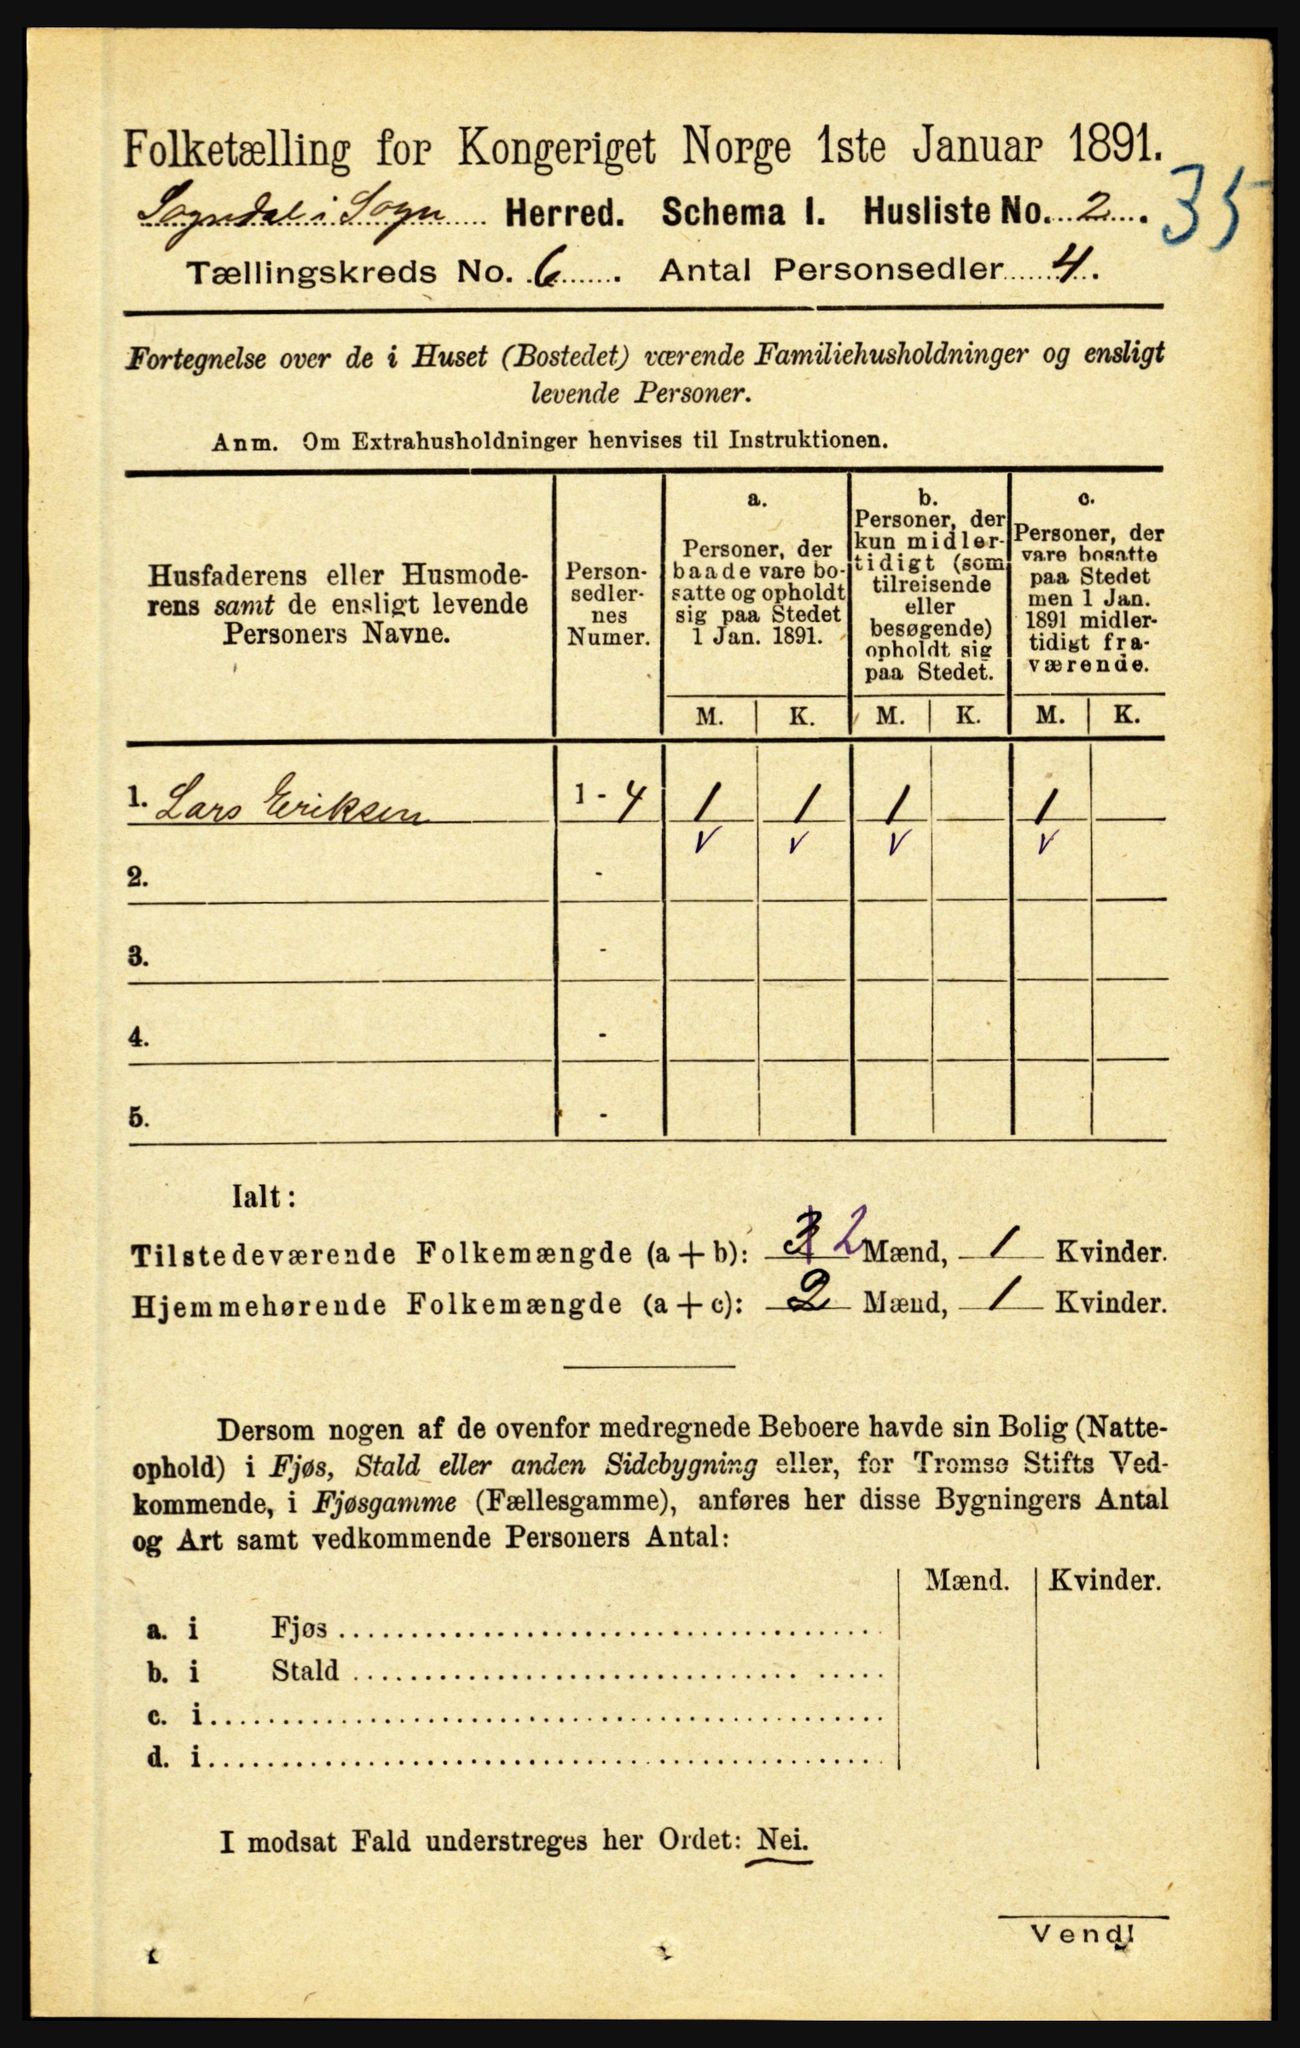 Folketælling for Kongeriget Norge 1ste Januar 1891.
Sogndal i Sogn Herred. Schema 1. Husliste No. 2.
35
Tællingskreds No. 6. Antal Personsedler 4.
Fortegnelse over de i Huset (Bostedet) værende Familiehusholdninger og ensligt
levende Personer.
Anm. Om Extrahusholdninger henvises til Instruktionen.
Husfaderens eller Husmode-
rens samt de ensligt levende
Personers Navne.
Person-
sedler-
nes
Numer.
a.
Personer, der
baade vare bo-
satte og opholdt
sig paa Stedet
1 Jan. 1891.
b.
Personer, der
kun midler-
tidigt (som
tilreisende
eller
besøgende)
opholdt sig
paa Stedet.
c.
Personer, der
vare bosatte
paa Stedet
men 1 Jan.
1891 midler-
tidigt fra-
værende.
M. K. M. K. M. K.
1. Lars Eriksen 1 - 4 1 1 1 1
v v v v
2. -
3. -
4. -
5. -
Ialt:
Tilstedeværende Folkemængde (a + b): 2 Mænd, 1 Kvinder.
Hjemmehørende Folkemængde (a + c): 2 Mænd, 1 Kvinder.
Dersom nogen af de ovenfor medregnede Beboere havde sin Bolig (Natte-
ophold) i Fjøs, Stald eller anden Sidebygning eller, for Tromsø Stifts Ved-
kommende, i Fjøsgamme (Fællesgamme), anføres her disse Bygningers Antal
og Art samt vedkommende Personers Antal:
Mænd. Kvinder.
a. i Fjøs
b. i Stald
c. i
d. i
I modsat Fald understreges her Ordet: Nei.
Vend!